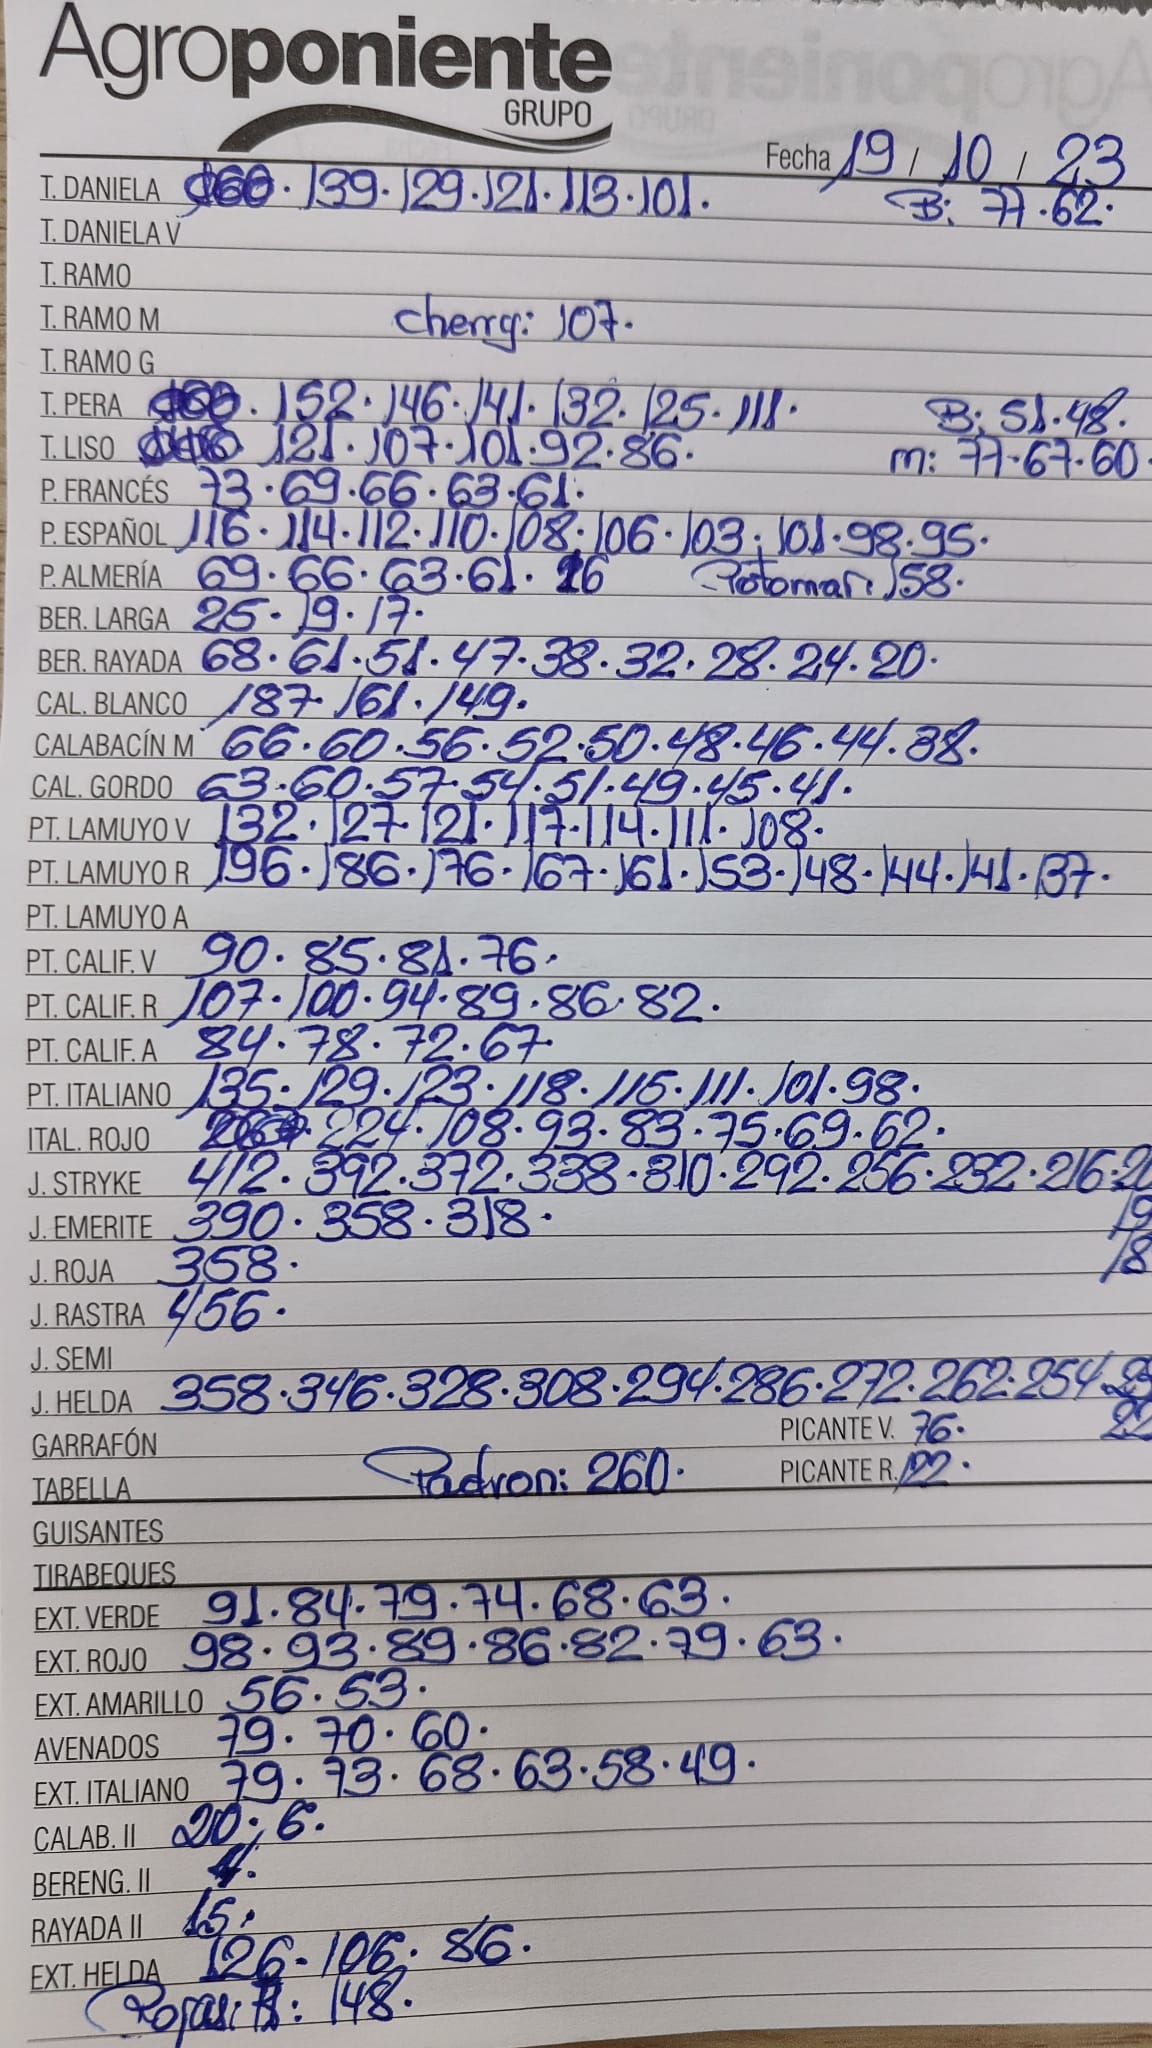 Agroponiente
GRUPO
Fecha 19 / 10 / 23
T. DANIELA 160. 139. 129. 121. 113. 101. B: 77. 62.
T. DANIELA V
T. RAMO
T. RAMO M cherry: 107.
T. RAMO G
T. PERA 160. 152. 146. 141. 132. 125. 111. B: 51. 48.
T. LISO 121. 107. 101. 92. 86. m: 77. 67. 60.
P. FRANCÉS 73. 69. 66. 63. 61.
P. ESPAÑOL 116. 114. 112. 110. 108. 106. 103. 101. 98. 95.
P. ALMERÍA 69. 66. 63. 61. Potomar: 158.
BER. LARGA 25. 19. 17.
BER. RAYADA 68. 61. 51. 47. 38. 32. 28. 24. 20.
CAL. BLANCO 187. 161. 149.
CALABACÍN M 66. 60. 56. 52. 50. 48. 46. 44. 38.
CAL. GORDO 63. 60. 57. 54. 51. 49. 45. 41.
PT. LAMUYO V 132. 127. 121. 117. 114. 111. 108.
PT. LAMUYO R 196. 186. 176. 167. 161. 153. 148. 144. 141. 137.
PT. LAMUYO A
PT. CALIF. V 90. 85. 81. 76.
PT. CALIF. R 107. 100. 94. 89. 86. 82.
PT. CALIF. A 84. 78. 72. 67.
PT. ITALIANO 135. 129. 123. 118. 115. 111. 101. 98.
ITAL. ROJO 224. 108. 93. 83. 75. 69. 62.
J. STRYKE 412. 392. 372. 338. 310. 292. 256. 232. 216.
J. EMERITE 390. 358. 318.
J. ROJA 358.
J. RASTRA 456.
J. SEMI
J. HELDA 358. 346. 328. 308. 294. 286. 272. 262. 254.
GARRAFÓN PICANTE V. 76.
TABELLA Padron: 260. PICANTE R. 122.
GUISANTES
TIRABEQUES
EXT. VERDE 91. 84. 79. 74. 68. 63.
EXT. ROJO 98. 93. 89. 86. 82. 79. 63.
EXT. AMARILLO 56. 53.
AVENADOS 79. 70. 60.
EXT. ITALIANO 79. 73. 68. 63. 58. 49.
CALAB. II 20. 6.
BERENG. II 4.
RAYADA II 15.
EXT. HELDA 126. 106. 86.
148.